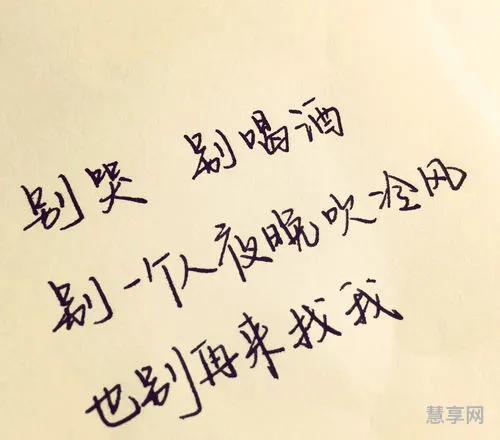 别哭 别喝酒
别一个人夜晚吹冷风
也别再来找我
慧享网